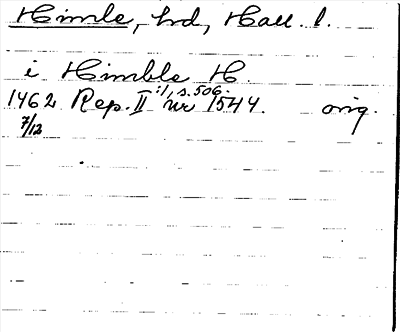 Himle, hd, Hall. l.
i Himble H.
1462 Rep. II :1, s. 506. nr 1544. orig.
7/12